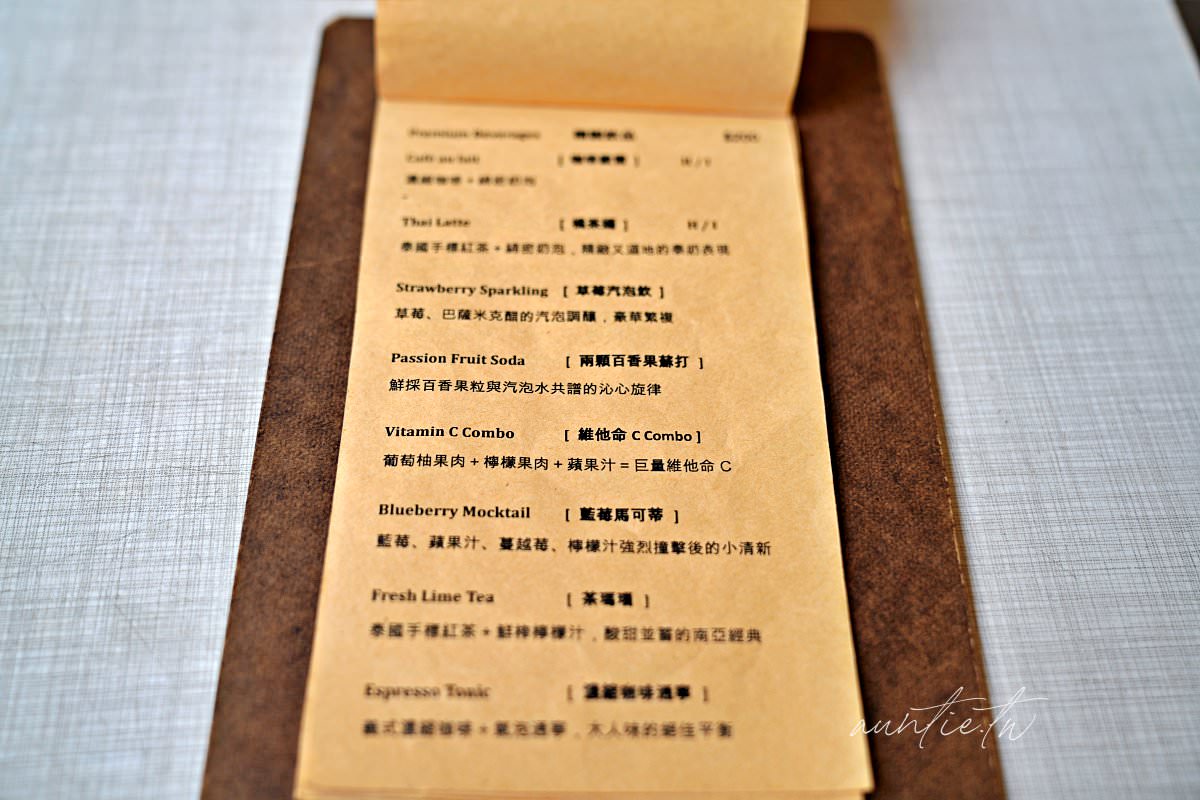 Premium Beverages
Café au lait H / I
濃縮咖啡 + 綿密奶泡
Thai Latte H / I
泰國手標紅茶 + 綿密奶泡，精緻又道地的泰奶表現
Strawberry Sparkling [ 草莓汽泡飲 ]
草莓、巴薩米克醋的汽泡調釀，豪華繁複
Passion Fruit Soda [ 兩顆百香果蘇打 ]
鮮採百香果粒與汽泡水共譜的沁心旋律
Vitamin C Combo [ 維他命 C Combo ]
葡萄柚果肉 + 檸檬果肉 + 蘋果汁 = 巨量維他命 C
Blueberry Mocktail [ 藍莓馬可蒂 ]
藍莓、蘋果汁、蔓越莓、檸檬汁強烈撞擊後的小清新
Fresh Lime Tea [ 茶瑪瑙 ]
泰國手標紅茶 + 鮮榨檸檬汁，酸甜並蓄的南亞經典
Espresso Tonic [ 濃縮咖啡通寧 ]
義式濃縮咖啡 + 氣泡通寧，木人味的絕佳平衡
auntie.tw